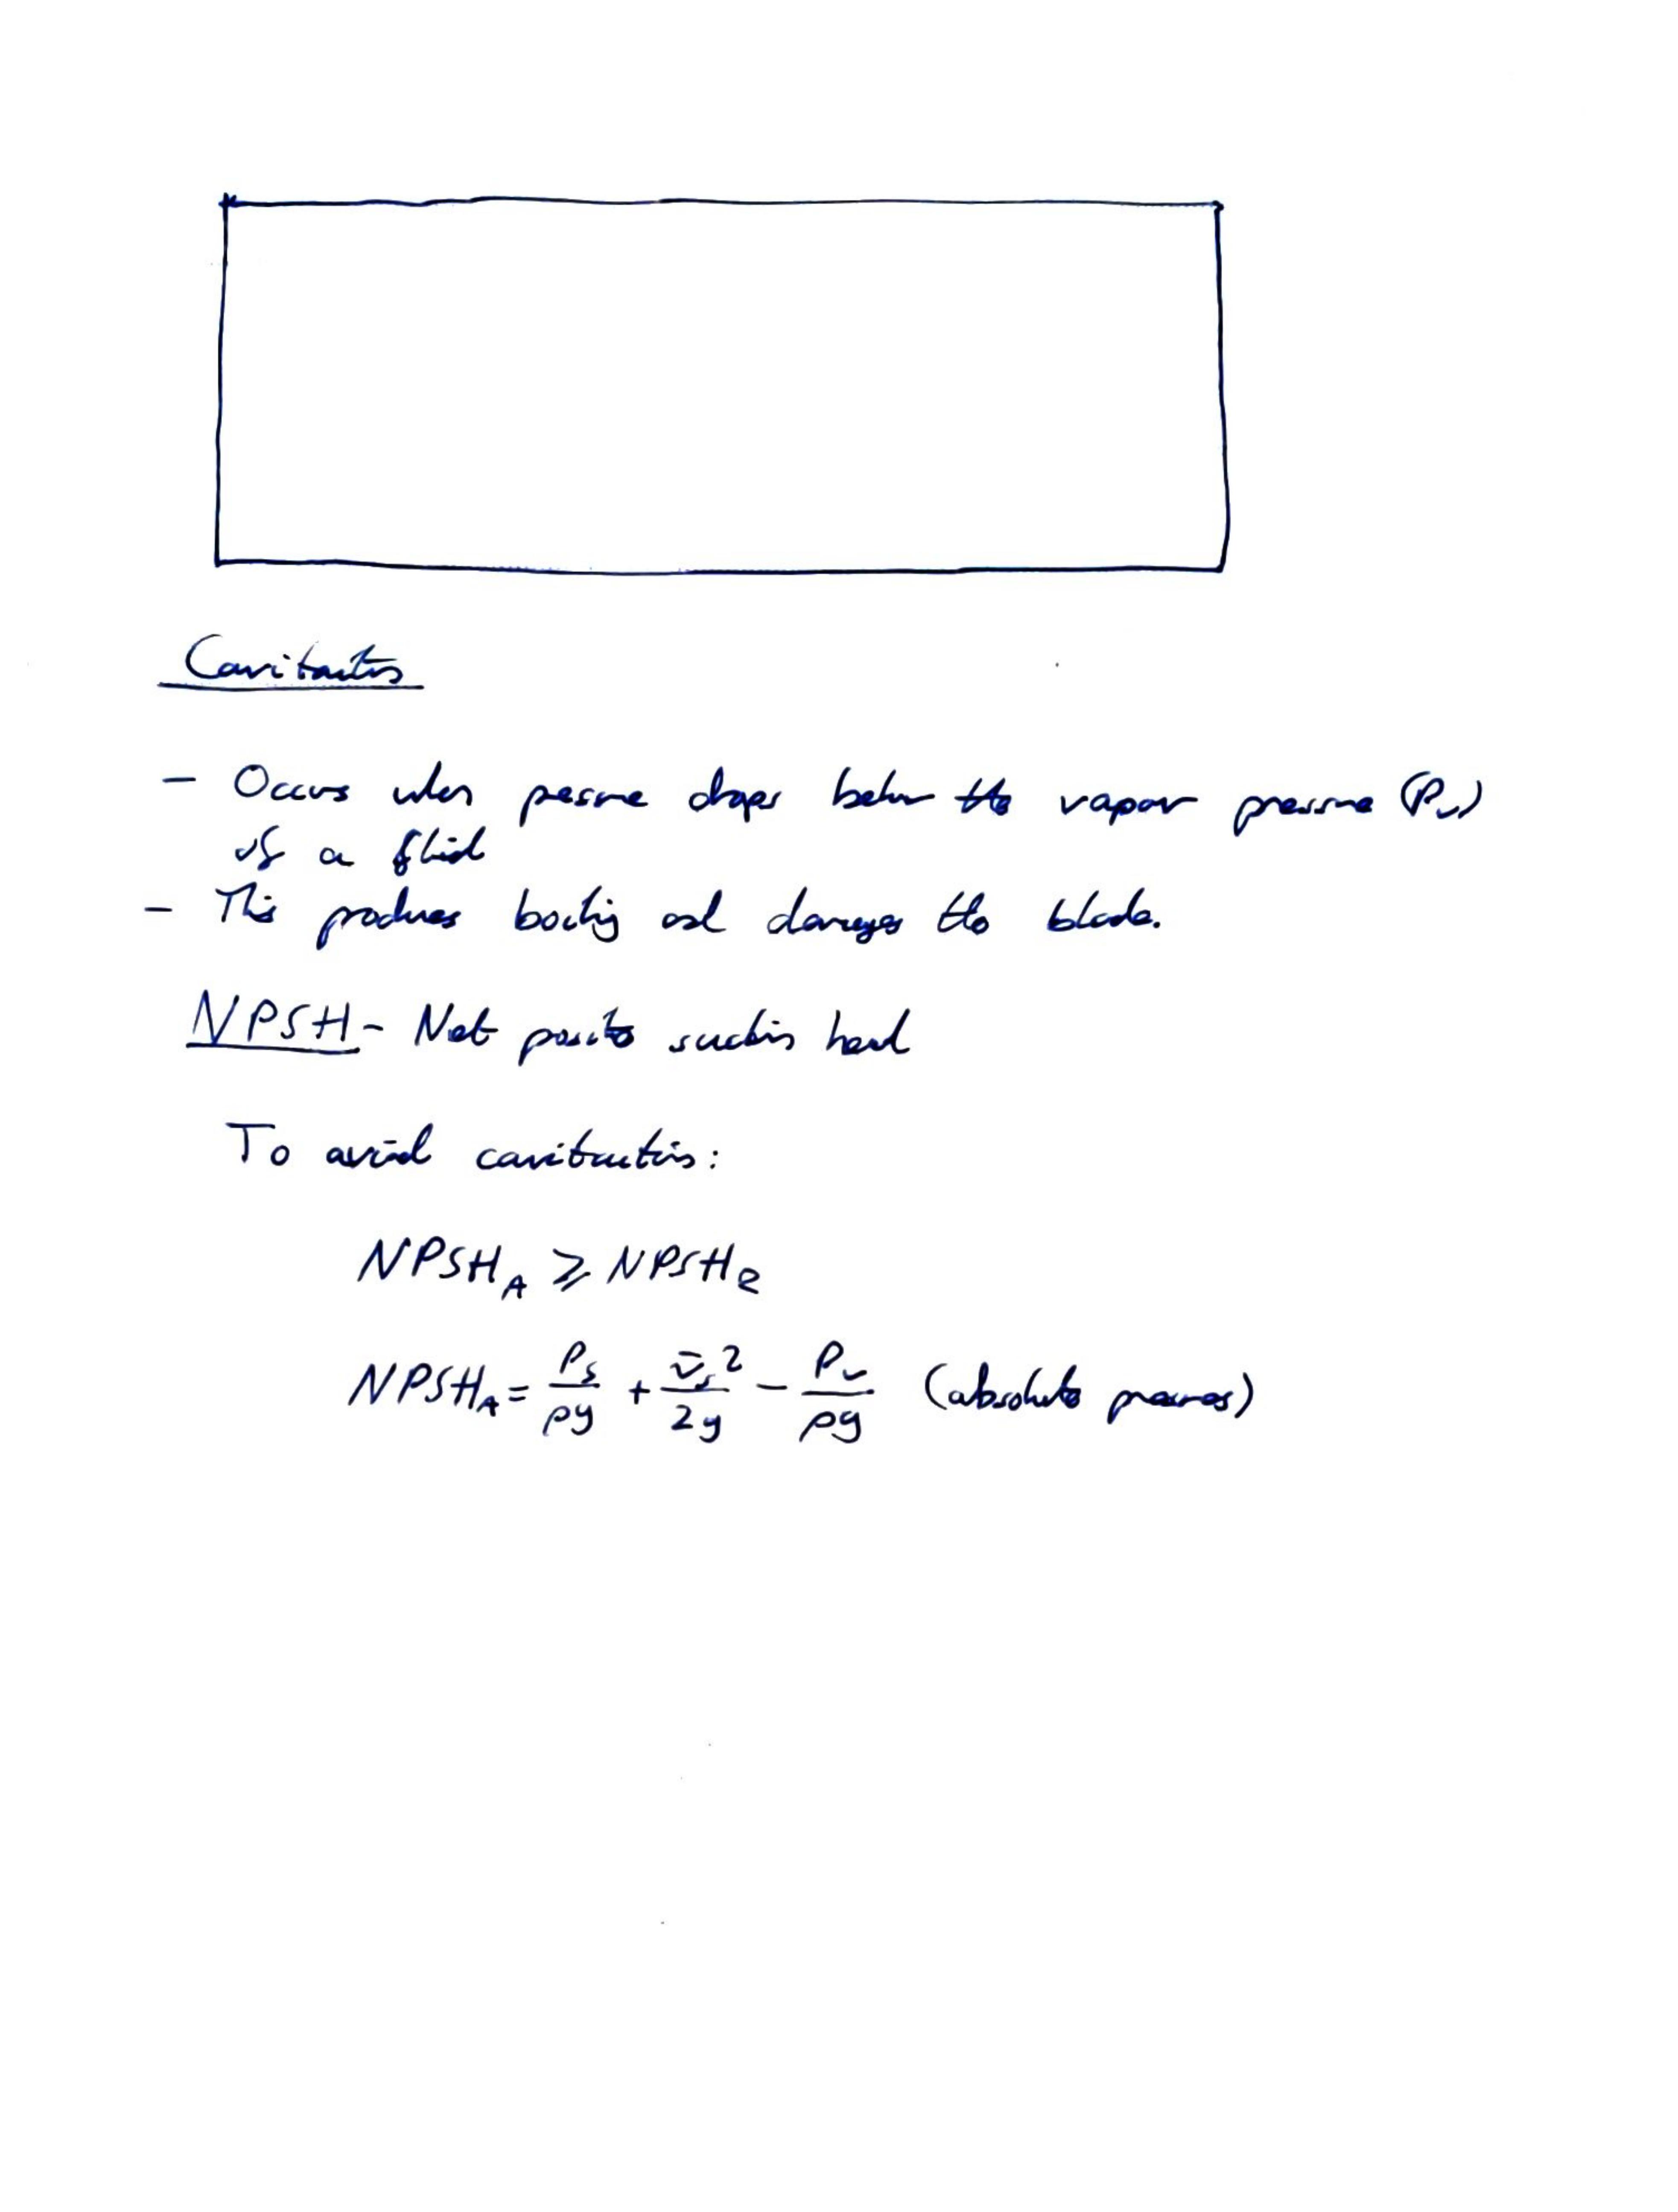 Cavitation
- Occurs when pressure drops below the vapor pressure (Pv)
of a fluid
- This produces boiling and damages the blade.
NPSH - Net positive suction head
To avoid cavitation:
NPSH_A ⩾ NPSH_R
NPSH_A = P_s/ρg + v̄_s²/2g - P_v/ρg (absolute pressures)